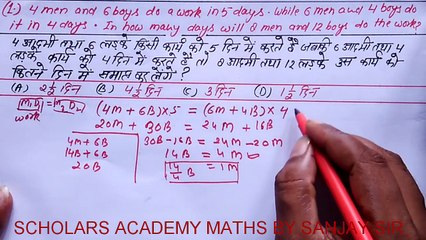 (1.) 4 men and 6 boys do a work in 5 days. while 6 men and 4 boys do
it in 4 days. In how many days will 8 men and 12 boys do the work?
4 आदमी तथा 6 लड़के किसी कार्य को 5 दिन में करते हैं जबकि 6 आदमी तथा 4
लड़के कार्य को 4 दिन में करते हैं तो 8 आदमी तथा 12 लड़के उस कार्य को
कितने दिन में समाप्त कर लेंगे?
(A) 2½ दिन (B) 4½ दिन (C) 3 दिन (D) 1½ दिन
M₁D₁ = M₂D₂
work
(4M + 6B) × 5 = (6M + 4B) × 4
20M + 30B = 24M + 16B
4M + 6B
30B - 16B = 24M - 20M
14B + 6B
14B = 4M
20B
14/4 B = 1M
SCHOLARS ACADEMY MATHS BY SANJAY SIR